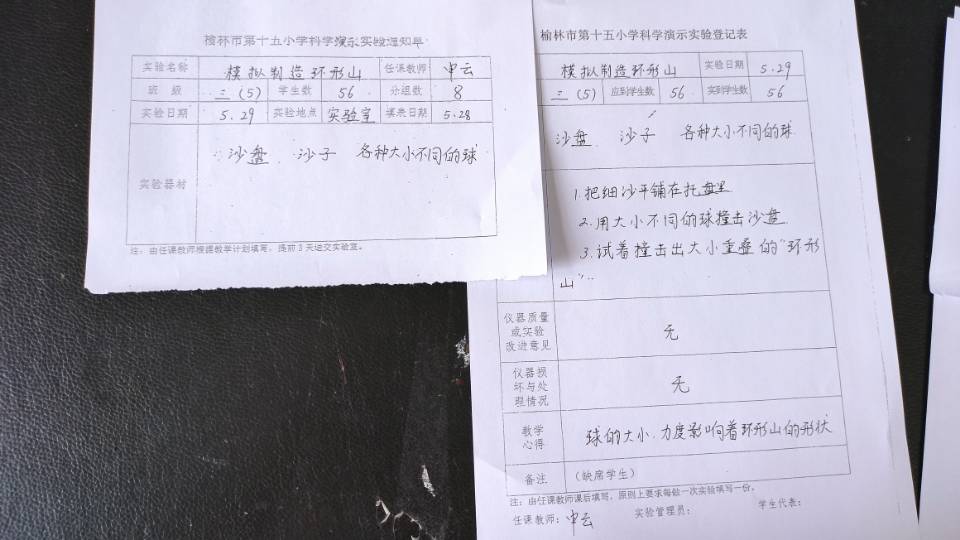 榆林市第十五小学科学演示实验通知单
实验名称 模拟制造环形山 任课教师 申云
班 级 三(5) 学生数 56 分组数 8
实验日期 5.29 实验地点 实验室 填表日期 5.28
实验器材 沙盘、沙子 各种大小不同的球
注:由任课教师根据教学计划填写,提前3天送交实验室。
榆林市第十五小学科学演示实验登记表
模拟制造环形山 实验日期 5.29
三(5) 应到学生数 56 实到学生数 56
沙盘、沙子 各种大小不同的球
1.把细沙平铺在托盘里
2.用大小不同的球撞击沙盘
3.试着撞击出大小重叠的“环形
山”
仪器质量
或实验
改进意见
无
仪器损
坏与处
理情况
无
教学
心得
球的大小、力度影响着环形山的形状
备注 (缺席学生)
注:由任课教师课后填写,原则上要求每做一次实验填写一份。
任课教师:申云 实验管理员: 学生代表: